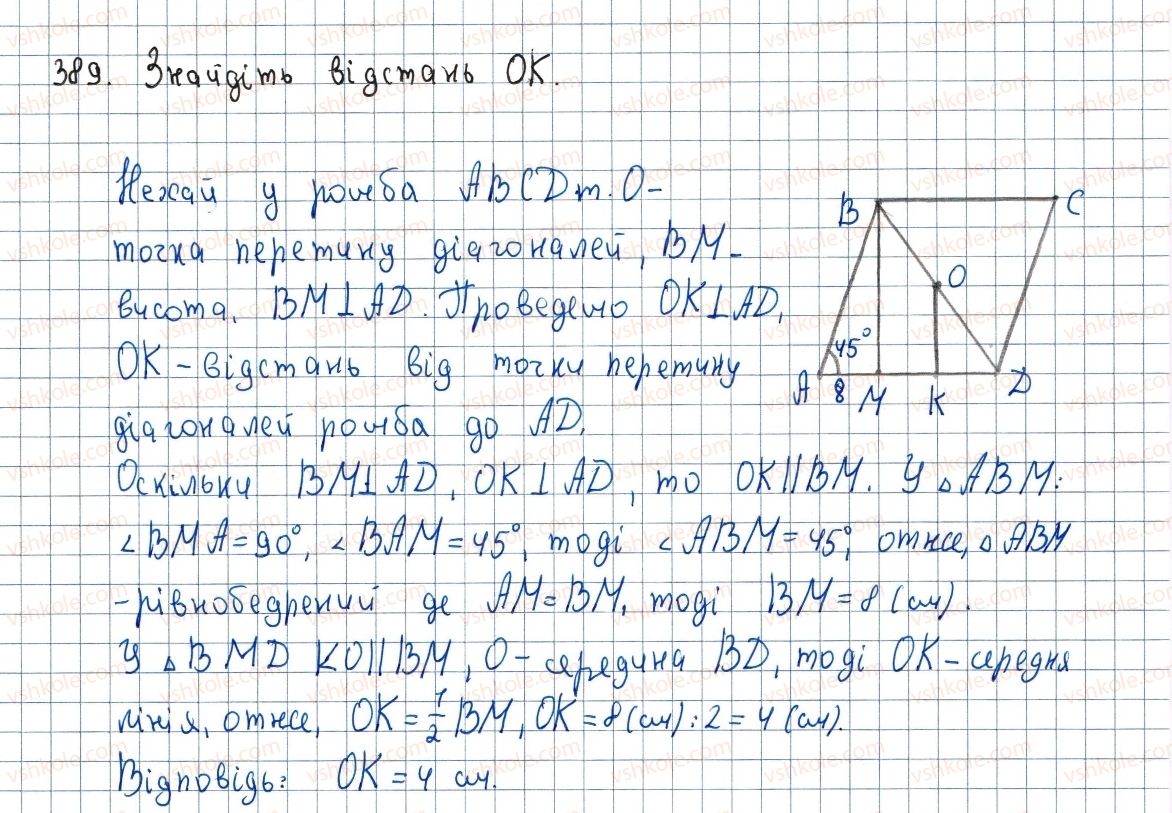 389. Знайдіть відстань ОК.
Нехай у ромба ABCD т. О-
точка перетину діагоналей, BM-
висота, BM⊥AD. Проведемо OK⊥AD,
OK - відстань від точки перетину
діагоналей ромба до AD.
Оскільки BM⊥AD, OK⊥AD, то OK||BM. У △ABM:
∠BMA=90°, ∠BAM=45°, тоді ∠ABM=45°, отже, △ABM
-рівнобедрений де AM=BM, тоді BM=8 (см).
У △BMD KO||BM, O- середина BD, тоді OK-середня
лінія, отже, OK=1/2 BM, OK=8(см):2=4(см).
Відповідь: OK=4 см.
B C
O
45°
A 8 M K D
vshkole.com